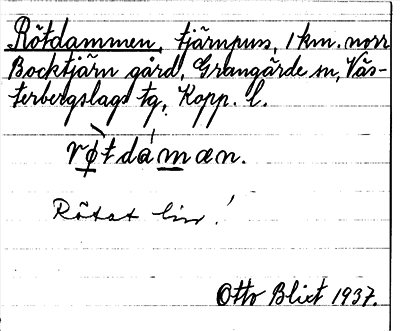 Rötdammen, tjärnpuss, 1 km. norr
Bocktjärn gård, Grangärde sn, Väs-
terbergslags tg, Kopp. l.
rø̀tdámæn.
Rötat lin!
Otto Blixt 1937.